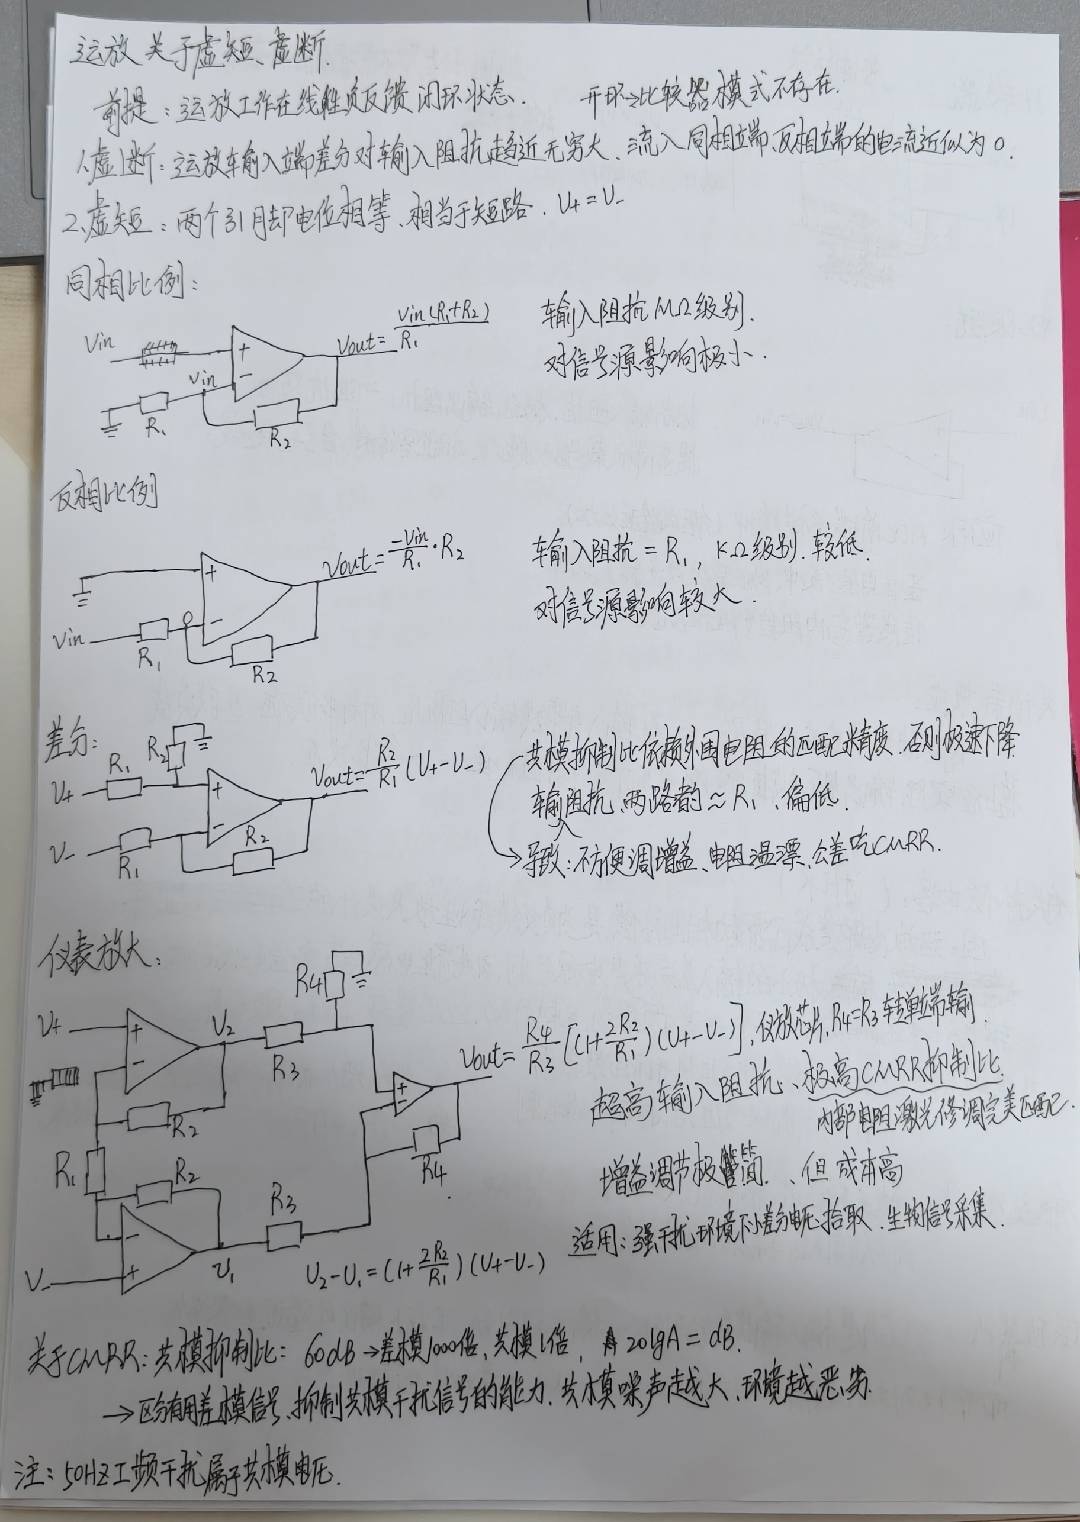 运放关于虚短、虚断.
前提：运放工作在线性负反馈闭环状态. 开环→比较器模式不存在.
1.虚断：运放输入端差分对输入阻抗趋近无穷大、流入同相端、反相端的电流近似为0.
2.虚短：两个引脚电位相等、相当于短路. U+=U-
同相比例：
Vin
+
Vout=Vin(R1+R2)/R1
输入阻抗MΩ级别.
对信号源影响极小.
Vin
-
R1
R2
反相比例
+
Vout=-Vin/R1·R2
输入阻抗=R1, KΩ级别.较低.
对信号源影响较大.
0
Vin
-
R1
R2
差分：
R1
R2
U+
+
Vout=R2/R1(U+-U-)
共模抑制比依赖外围电阻的匹配精度.否则极速下降
输入阻抗、两路都≈R1、偏低.
U-
-
R1
R2
导致：不方便调增益、电阻温漂、公差吃CMRR.
仪表放大：
R4
U+
+
-
U2
R3
Vout=R4/R3[(1+2R2/R1)(U+-U-)],仪放芯片,R4=R3转单端输.
超高输入阻抗、极高CMRR抑制比
内部电阻激光修调完美匹配.
+
-
R2
R1
R2
R3
R4
增益调节极简、但成本高
适用：强干扰环境下小差分电压拾取.生物信号采集.
-
+
U-
U1
U2-U1=(1+2R2/R1)(U+-U-)
关于CMRR：共模抑制比：60dB→差模1000倍、共模1倍, 20lgA=dB.
→区分有用差模信号、抑制共模干扰信号的能力.共模噪声越大、环境越恶劣.
注：50HZ工频干扰属于共模电压.